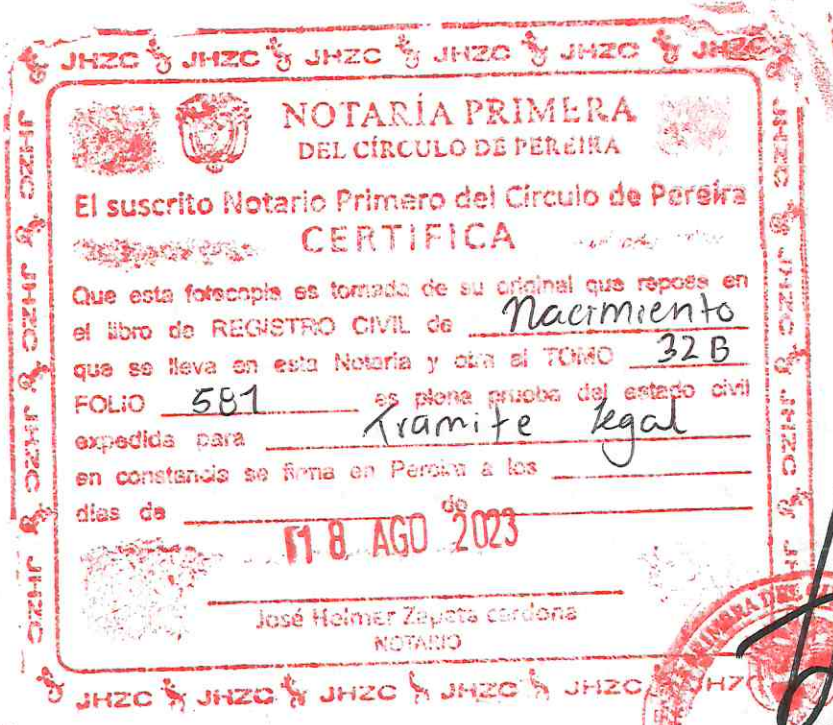 JHZC JHZC JHZC JHZC JHZC JHZC
NOTARÍA PRIMERA
DEL CÍRCULO DE PEREIRA
El suscrito Notario Primero del Circulo de Pereira
CERTIFICA
Que esta fotocopia es tomada de su original que reposa en
el libro de REGISTRO CIVIL de Nacimiento
que se lleva en esta Notaria y obra al TOMO 32B
FOLIO 581 es plena prueba del estado civil
expedida para Tramite legal
en constancia se firma en Pereira a los
días de de
18 AGO 2023
José Helmer Zapata cardona
NOTARIO
JHZC JHZC JHZC JHZC JHZC
JHZC
JHZC
JHZC
JHZC
JHZC
JHZC
JHZC